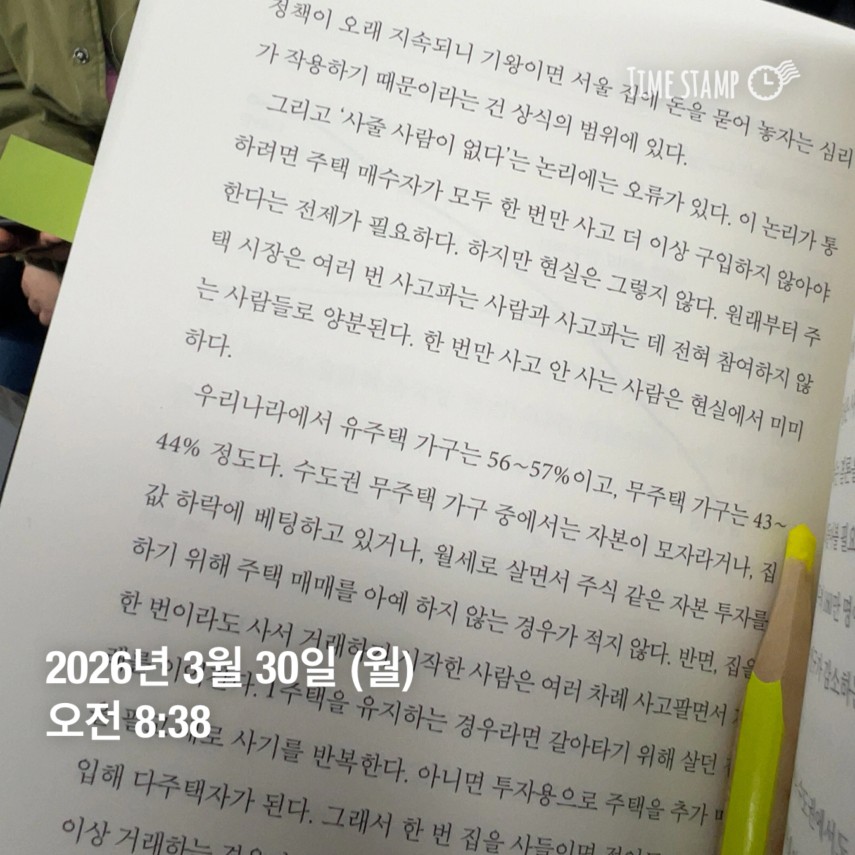 정책이 오래 지속되니 기왕이면 서울 집에 돈을 묻어 놓자는 심리
가 작용하기 때문이라는 건 상식의 범위에 있다.
그리고 ‘사줄 사람이 없다’는 논리에는 오류가 있다. 이 논리가 통
하려면 주택 매수자가 모두 한 번만 사고 더 이상 구입하지 않아야
한다는 전제가 필요하다. 하지만 현실은 그렇지 않다. 원래부터 주
택 시장은 여러 번 사고파는 사람과 사고파는 데 전혀 참여하지 않
는 사람들로 양분된다. 한 번만 사고 안 사는 사람은 현실에서 미미
하다.
우리나라에서 유주택 가구는 56~57%이고, 무주택 가구는 43~
44% 정도다. 수도권 무주택 가구 중에서는 자본이 모자라거나, 집
값 하락에 베팅하고 있거나, 월세로 살면서 주식 같은 자본 투자를
하기 위해 주택 매매를 아예 하지 않는 경우가 적지 않다. 반면, 집을
한 번이라도 사서 시작한 사람은 여러 차례 사고팔면서
1주택을 유지하는 경우라면 갈아타기 위해 살던
사기를 반복한다. 아니면 투자용으로 주택을 추가
입해 다주택자가 된다. 그래서 한 번 집을 사들이면
이상 거래하는
TIME STAMP
2026년 3월 30일 (월)
오전 8:38